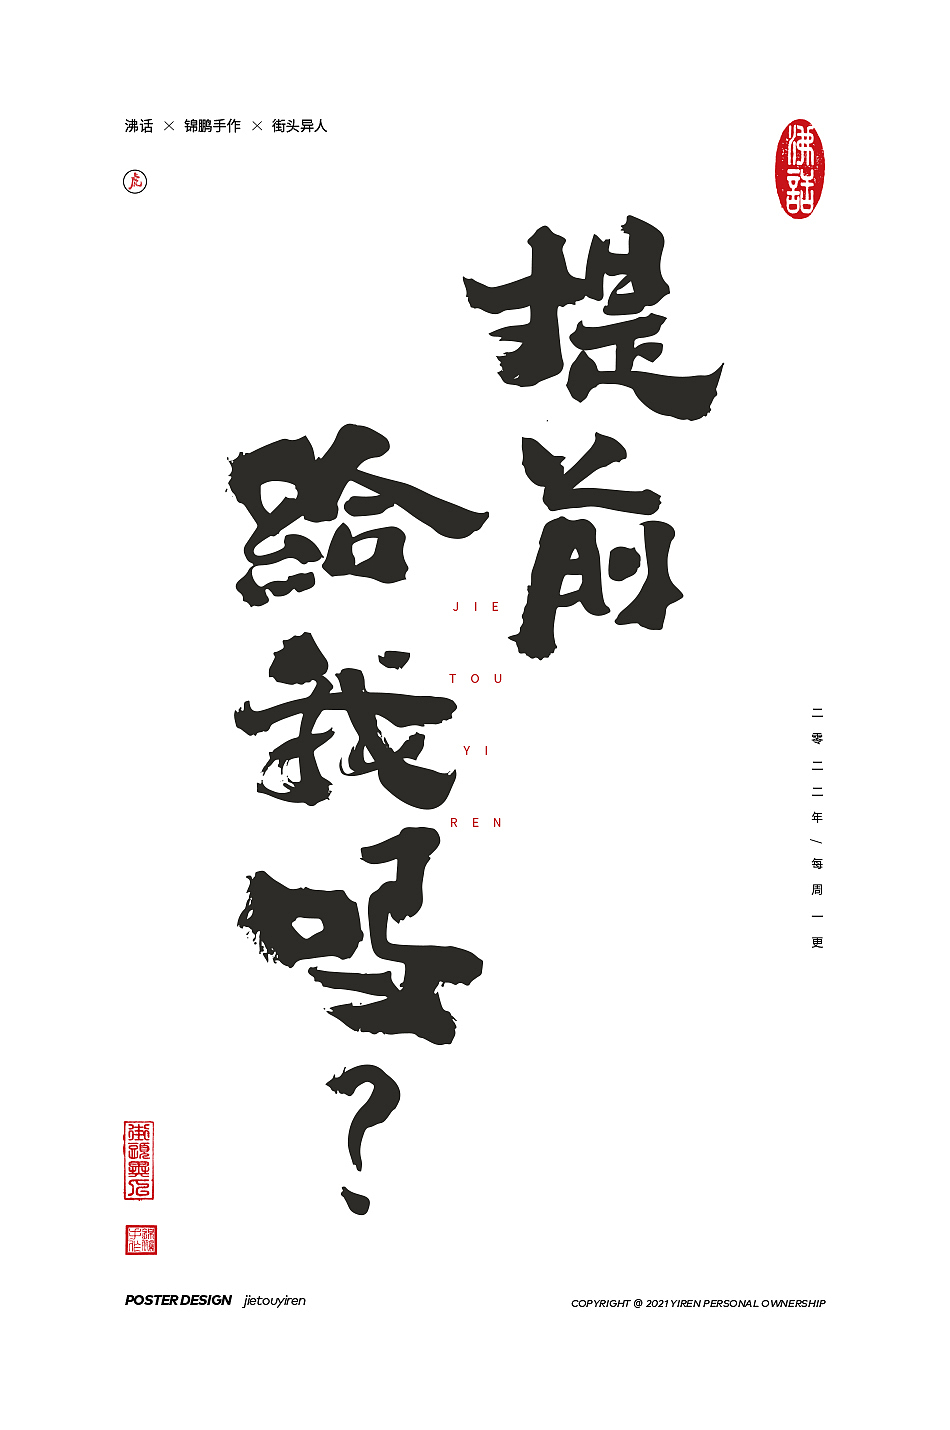 沸话 × 锦鹏手作 × 街头异人
虎
沸話
提前
給我吗?
JIE
TOU
YI
REN
二零二二年/每周一更
街頭異人
POSTER DESIGN jietouyiren
COPYRIGHT @ 2021 YIREN PERSONAL OWNERSHIP